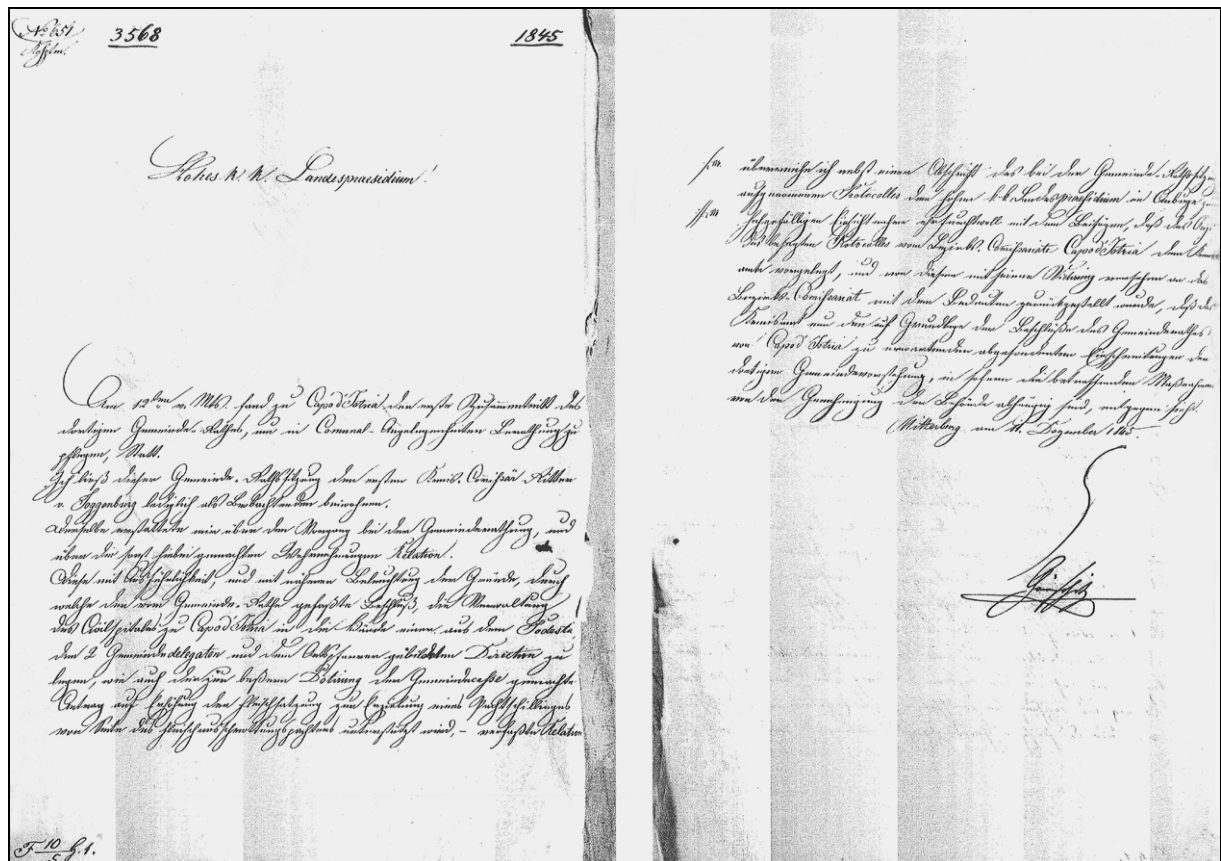 No 651
3568
1845
Hohes k. k. Landespraesidium!
Am 12ten v. Mts. fand zu Capo d'Istria der erste Zusammentritt des
dortigen Gemeinde-Rathes, um in Comunal-Angelegenheiten Berathung zu
pflegen, Statt.
Ich ließ dieser Gemeinde-Rathssitzung den ersten Kreis-Commissär Ritter
v. Toggenburg lediglich als Beobachtenden beiwohnen.
Derselbe erstattete mir über den Vorgang bei der Gemeindeberathung, und
über die sonst hiebei gemachten Wahrnehmungen Relation.
Diese mit Ausführlichkeit, und mit näherer Beleuchtung der Gründe, durch
welche der vom Gemeinde-Rathe gefaßte Beschluß, die Verwaltung
des Civilspitales zu Capo d'Istria in die Hände einer aus dem Podestà,
den 2 Gemeindedelegaten und dem Ortspfarrer gebildeten Direction zu
legen, wie auch der zur beßern Dotirung der Gemeindecasse gemachte
Antrag auf Erhöhung der Fleischsatzung zur Erzielung eines Pachtschillinges
von Seite des Fleischausschrottungspächters unterstützt wird, – verfaßte Relation
F 10/5 G. 1.
./. überreiche ich nebst einer Abschrift des bei der Gemeinde-Rathssitzung
aufgenommenen Protocolles dem hohen k. k. Landespraesidium im Anbuge zur
.//. hochgefälligen Einsichtnahme ehrfurchtvoll mit dem Beifügen, daß das
des besagten Protocolles vom Bezirks-Commissariate Capo d'Istria dem Kreis-
amte vorgelegt, und von diesem mit seiner Vidirung versehen an das
Bezirks-Comissariat mit dem Bedeuten zurückgestellt wurde, daß das
Kreisamt nur den auf Grundlage der Beschlüße des Gemeinderathes
von Capo d'Istria zu erwartenden abgesonderten Einschreitungen der
dortigen Gemeindevorstehung, in sofern die betreffenden Maßnahmen
von der Genehmigung der Behörde abhängig sind, entgegen sieht.
Mitterburg am 11. Dezember 1845.